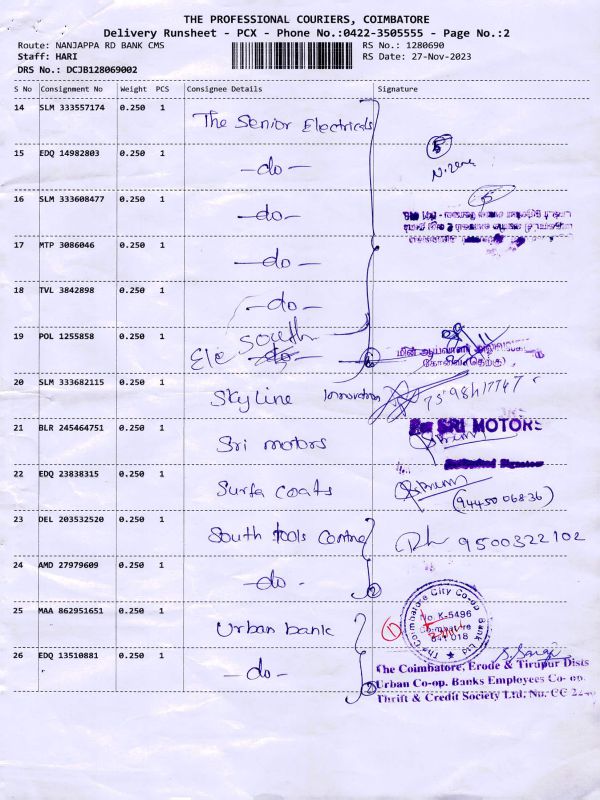 THE PROFESSIONAL COURIERS, COIMBATORE
Delivery Runsheet - PCX - Phone No.:0422-3505555 - Page No.:2
Route: NANJAPPA RD BANK CMS RS No.: 1280690
Staff: HARI RS Date: 27-Nov-2023
DRS No.: DCJB128069002
S No Consignment No Weight PCS Consignee Details Signature
14 SLM 333557174 0.250 1 The Senior Electricals
15 EDQ 14982803 0.250 1 -do-
16 SLM 333608477 0.250 1 -do-
17 MTP 3086046 0.250 1 -do-
18 TVL 3842898 0.250 1 -do-
19 POL 1255858 0.250 1 Ele South
20 SLM 333682115 0.250 1 Skyline Innovation
21 BLR 245464751 0.250 1 Sri motors For SRI MOTORS
22 EDQ 23838315 0.250 1 Surfa coats
(94450 06836)
23 DEL 203532520 0.250 1 South tools Centre 9500322102
24 AMD 27979609 0.250 1 -do- 2
25 MAA 862951651 0.250 1 Urban bank
The Coimbatore City Co-op Bank Ltd
No. K-5496
Coimbatore
641 018
26 EDQ 13510881 0.250 1 -do- 2
The Coimbatore, Erode & Tirupur Dists
Urban Co-op. Banks Employees Co-op.
Thrift & Credit Society Ltd. No. CC